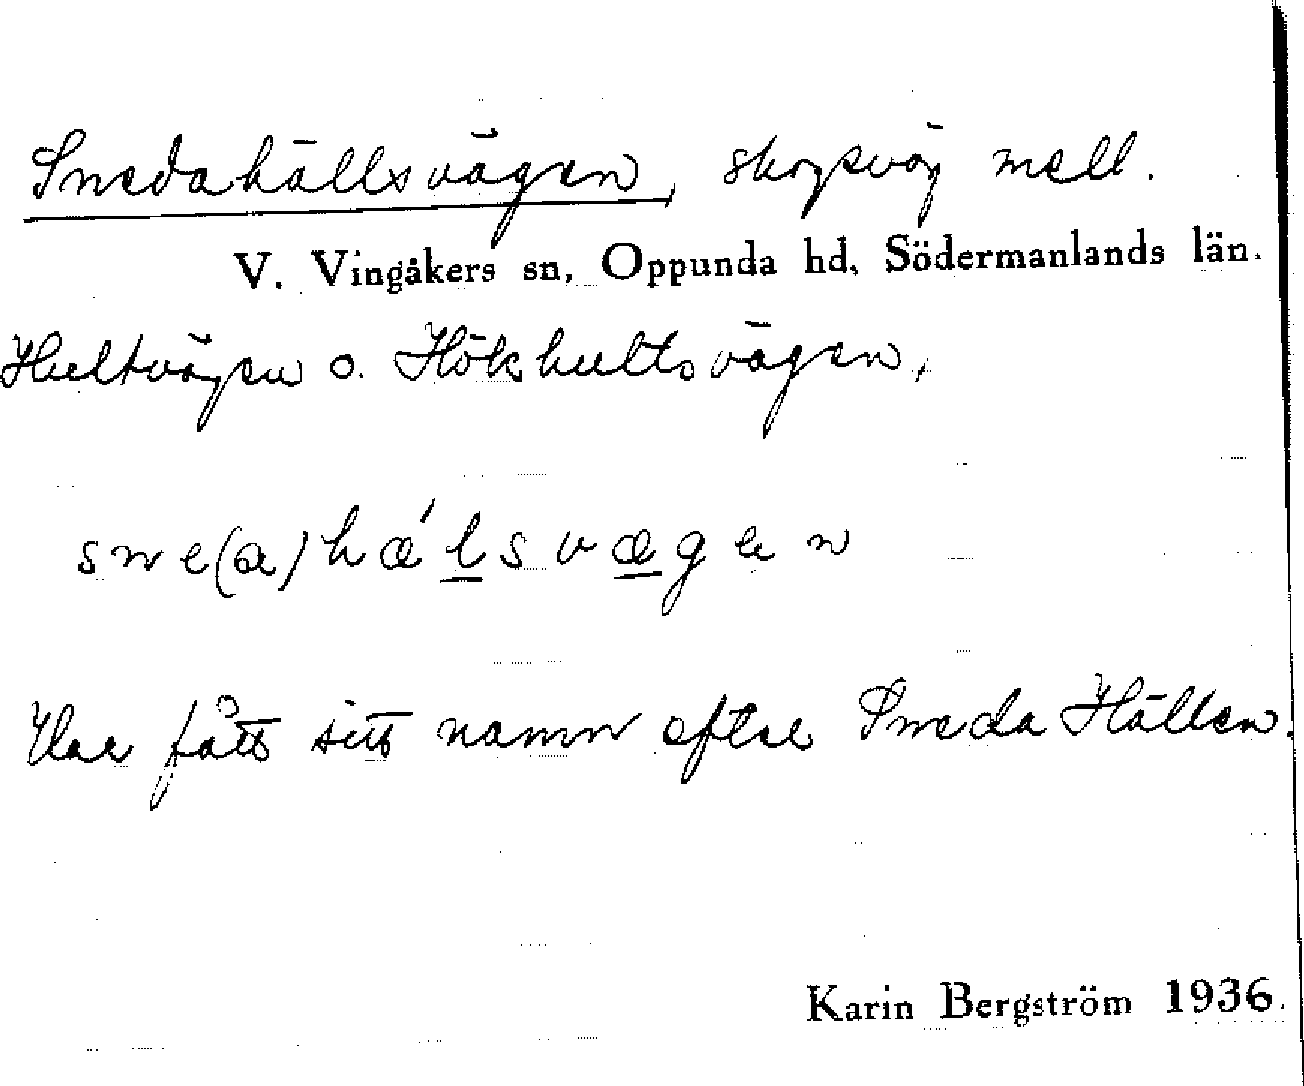 Snedahällsvägen, skogsväg mell.
V. Vingåkers sn, Oppunda hd, Södermanlands län.
Hultvägen o. Hökhultsvägen,
sne(a)hǽlsvægen
Har fått sitt namn efter Sneda Hällen.
Karin Bergström 1936.